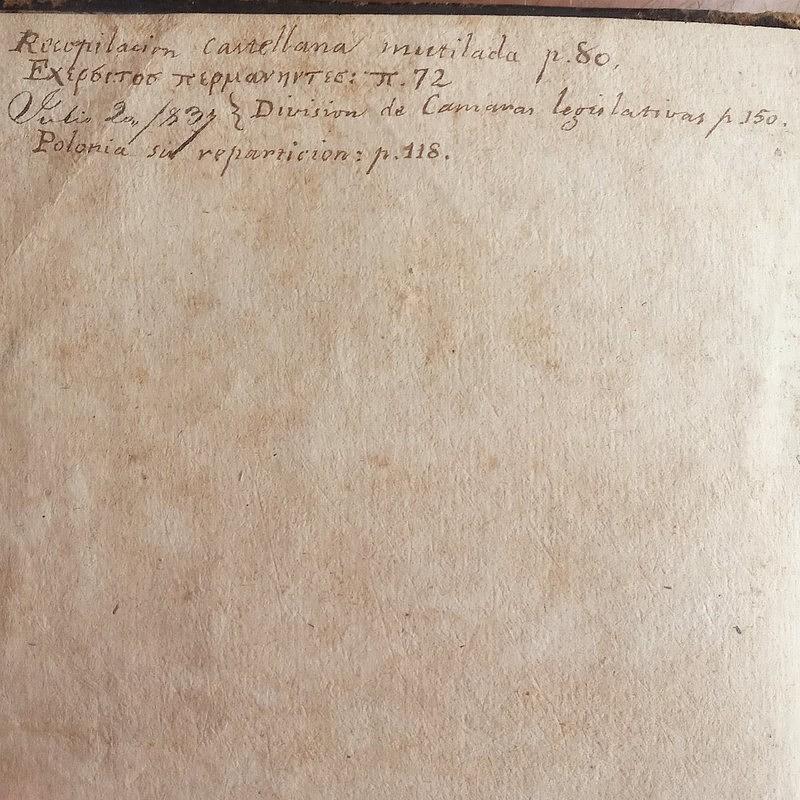 Recopilacion castellana mutilada p.80.
Εχερσιτοσ περμανηντες: π.72
Julio 2 1837 } Division de Camaras legislativas p.150.
Polonia su reparticion: p.118.